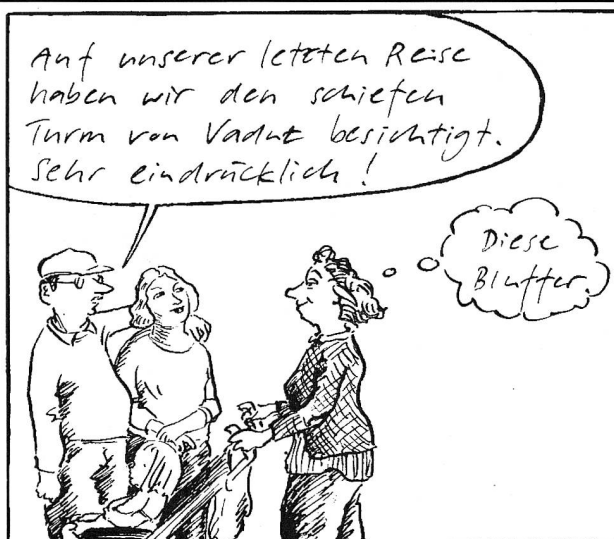 Auf unserer letzten Reise
haben wir den schiefen
Turm von Vaduz besichtigt.
Sehr eindrücklich!
Diese
Bluffer.